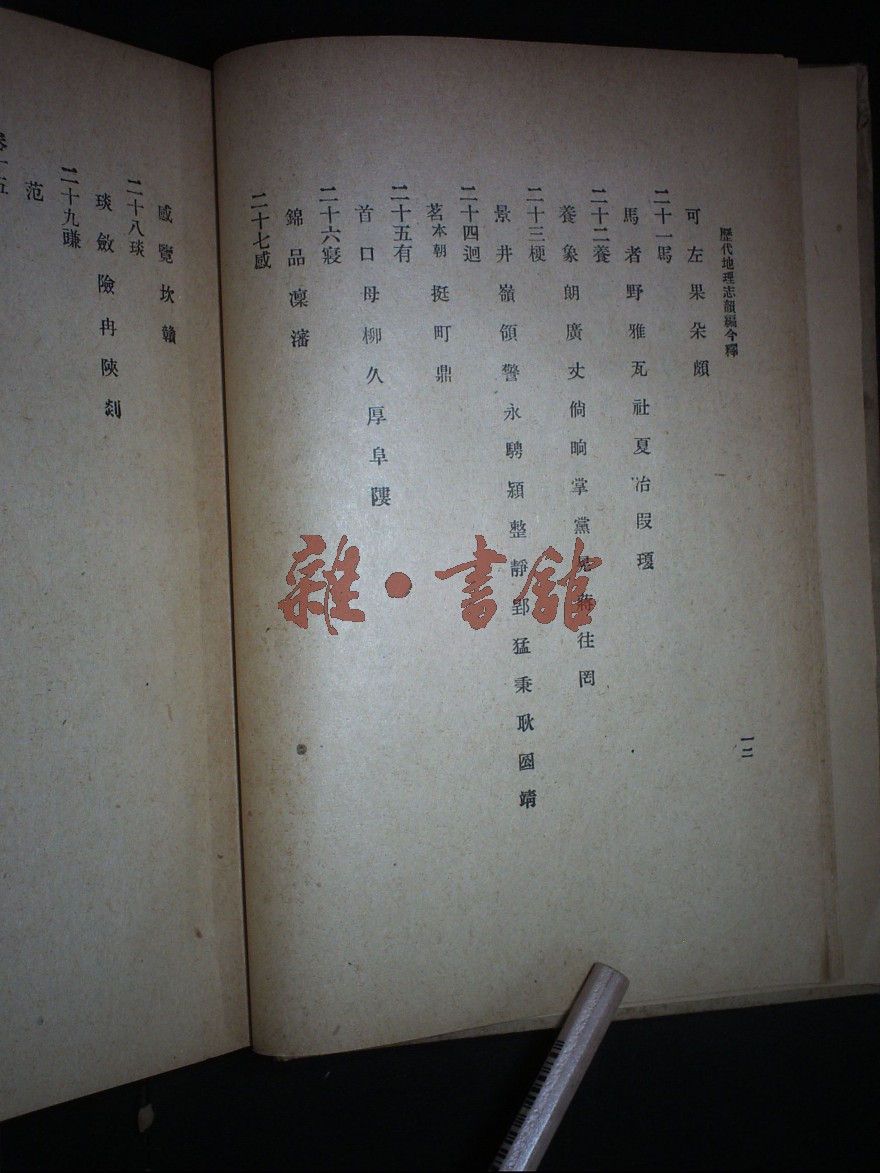 歷代地理志韻編今釋
一二
可左果朵頗
二十一馬
馬者野雅瓦社夏冶叚瑕
二十二養
養象朗廣丈倘晌掌黨晃蔣往罔
二十三梗
景井嶺領警永騁潁整靜郢猛秉耿囼靖
二十四迴
茗本朝挺町鼎
二十五有
首口母柳久厚阜
二十六寑
錦品凜瀋
二十七感
感覽坎贛
二十八琰
琰斂險冉陝剡
二十九豏
范
卷十五
雜·書館